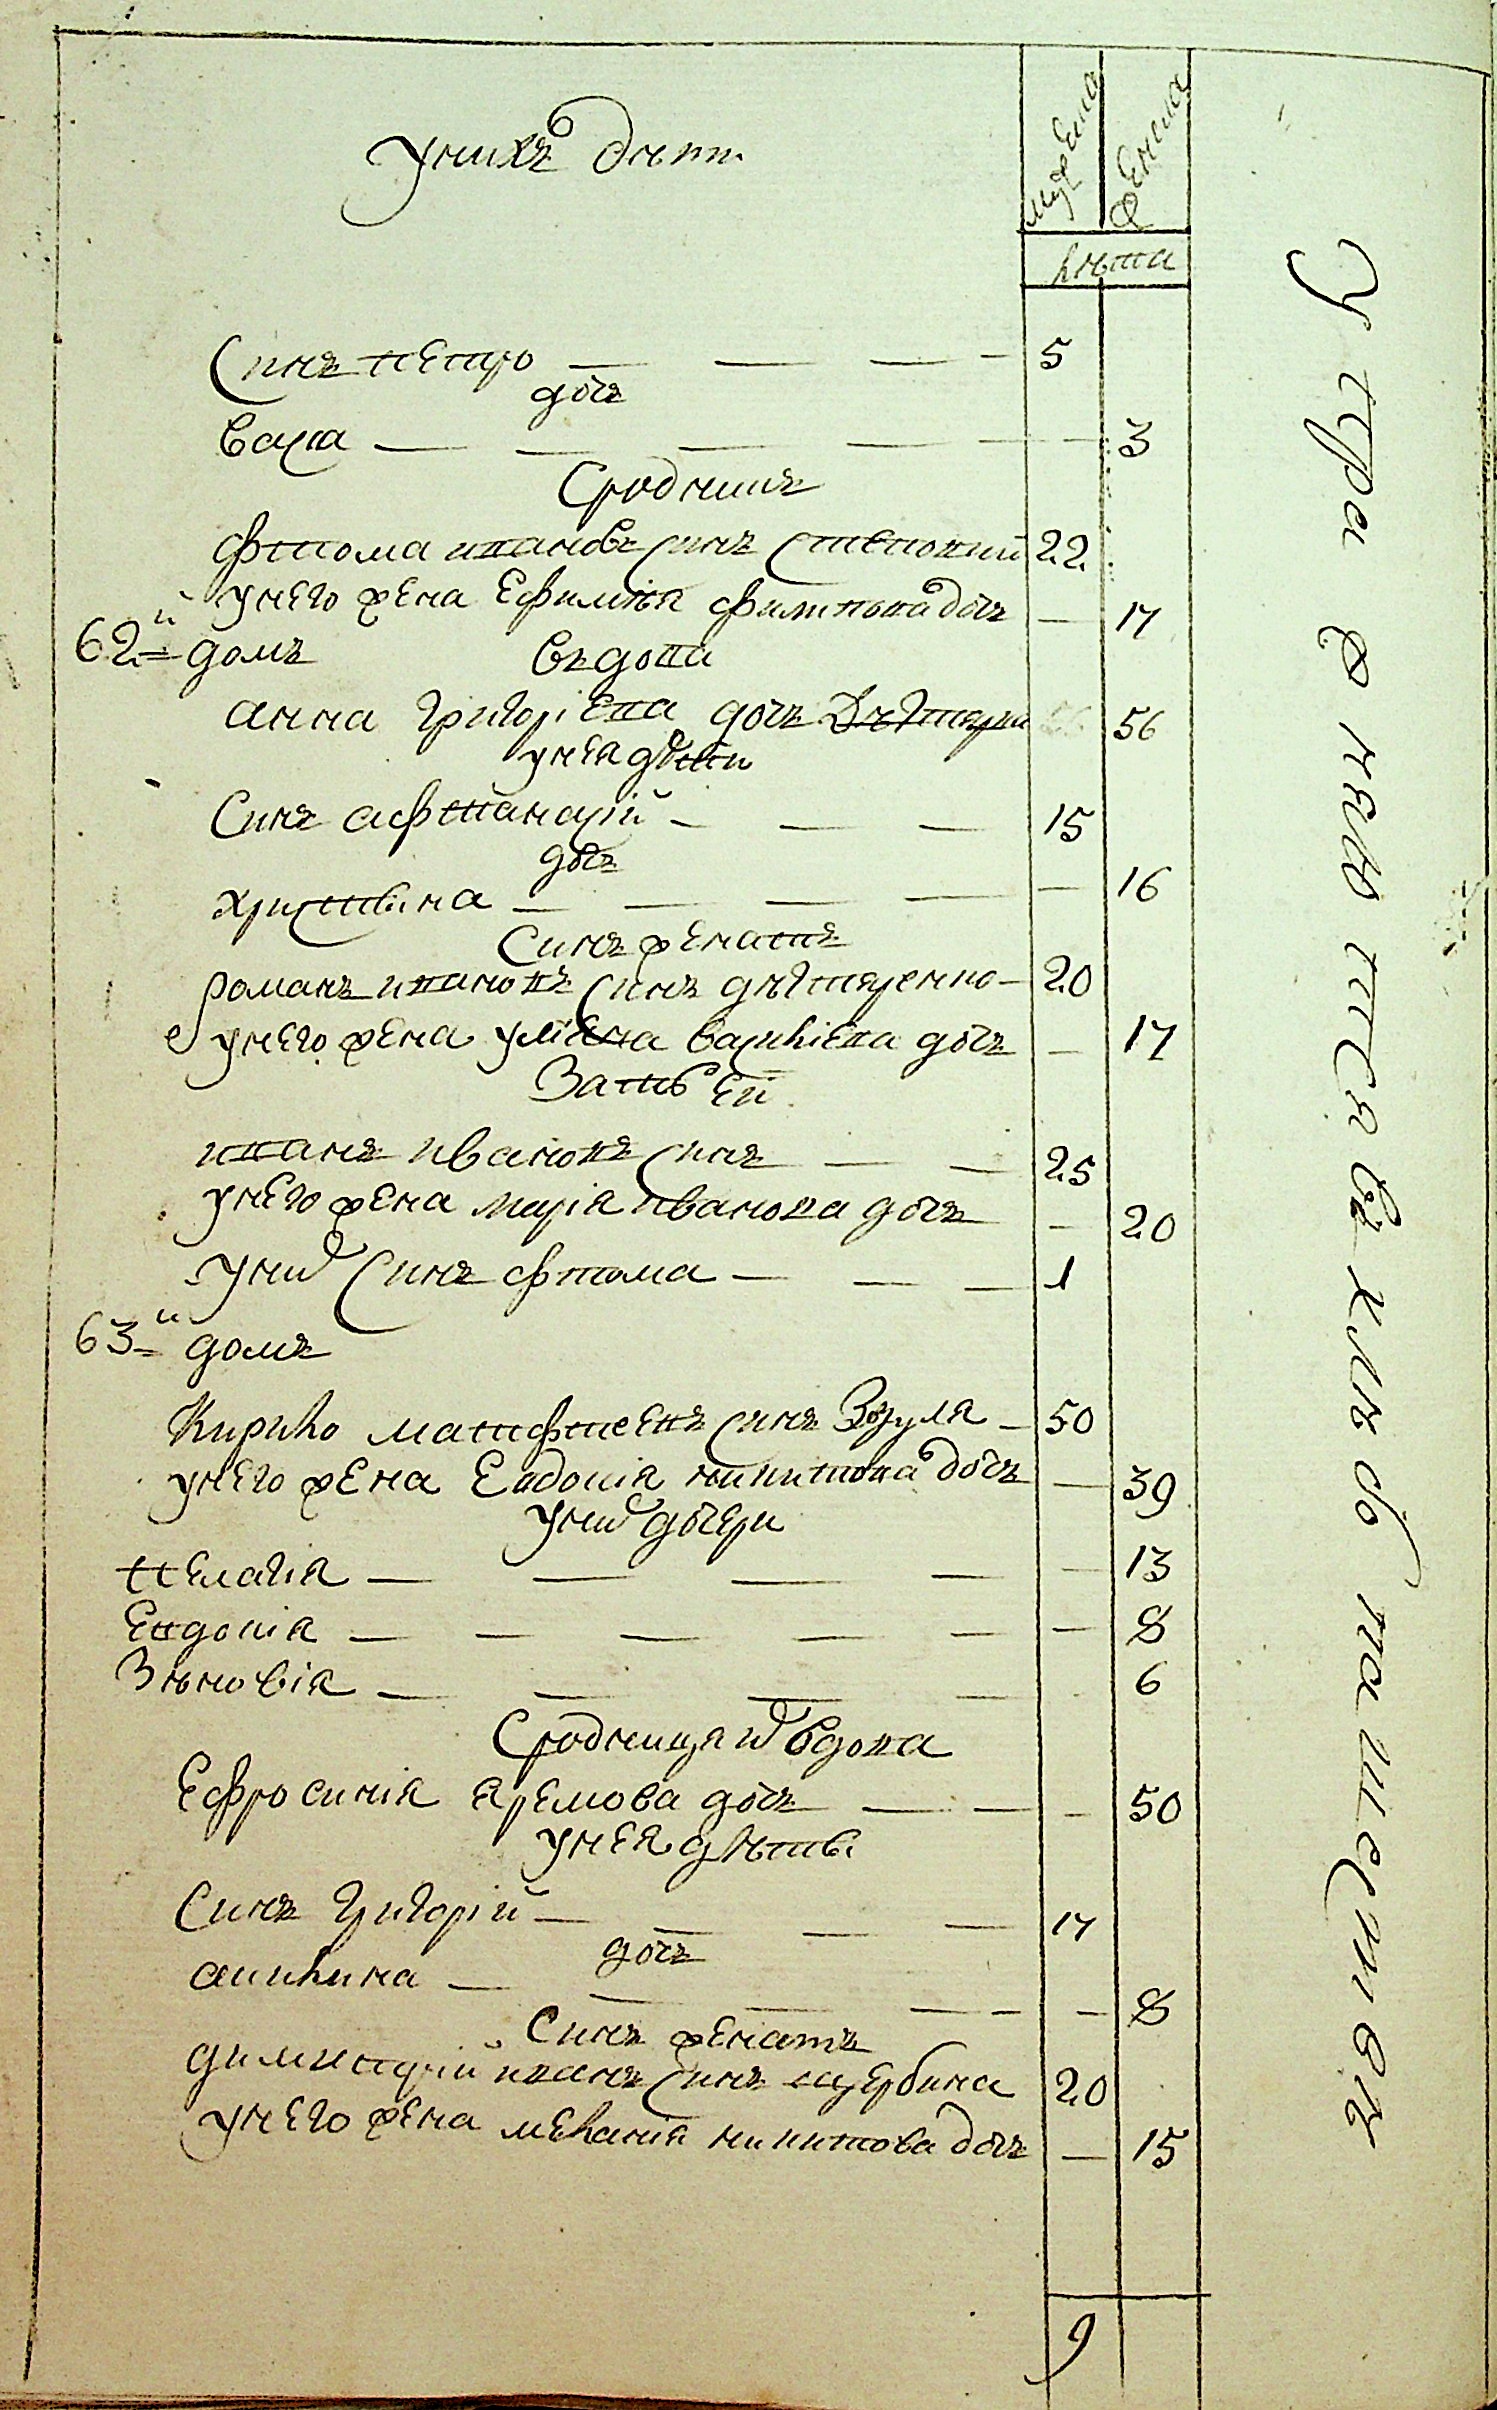 унихъ дѣти
мужеска
женска
лѣта
Синъ петро — — — — 5
дочъ
васса — — — — — 3
Сродникъ
фтома ивановъ синъ 22
унего жена Ефимия филипова дочъ — 17
62 й домъ вдова
анна григоріева дочъ 56
унея дѣти
Синъ афтанасій — — — 15
дочъ
християна — — — — — 16
Синъ женатъ
романъ ивановъ синъ — 20
унего жена улиена василіева дочъ — 17
Зять ей
иванъ ивановъ синъ — — 25
унего жена марія иванова дочъ — 20
унихъ Синъ фтома — — — 1
63 й домъ
Кирило матфтеевъ синъ Зозуля — 50
унего жена Евдокія никитова дочъ — 39
унихъ дочери
пелагія — — — — — 13
Евдокія — — — — — — 8
Зѣновія — — — — 6
Сродница их вдова
Ефросинія яремова дочъ — — — 50
унея дѣти
Синъ григорій — — — — 17
дочъ
акилина — — — — — — 8
Синъ женатъ
димитрій иванъ синъ щербина 20
унего жена меланія никитова дочъ — 15
9